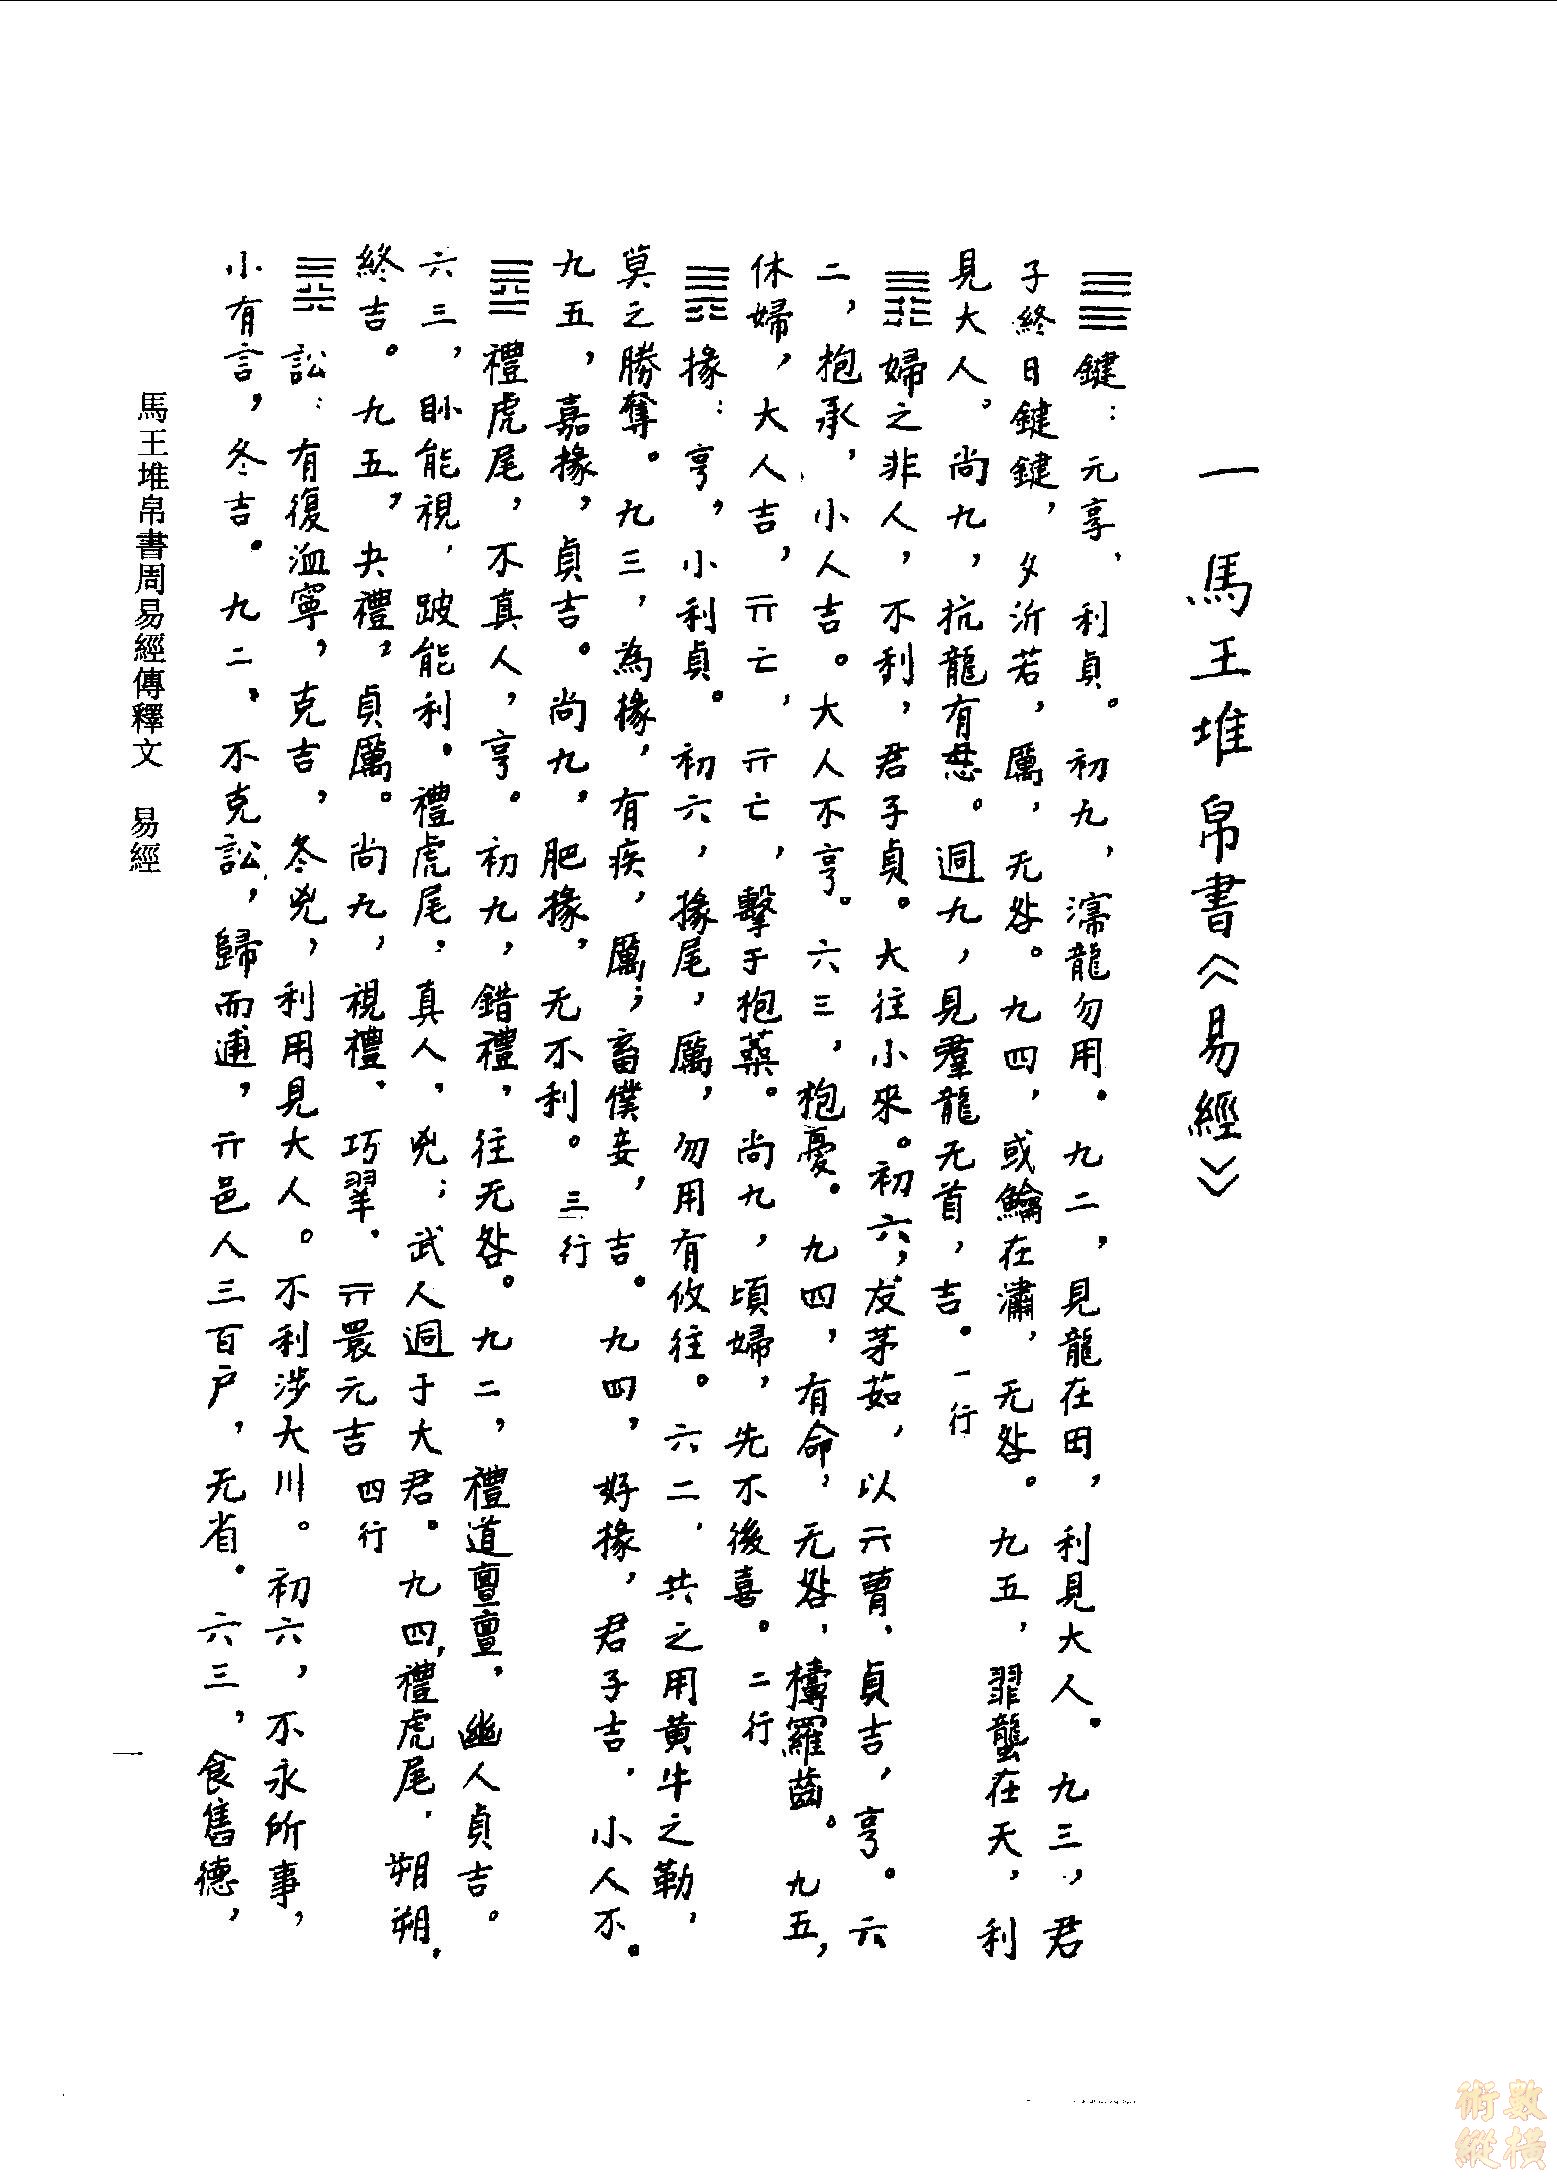 一 馬王堆帛書《易經》
䷀鍵：元享，利貞。初九，濡龍勿用。九二，見龍在田，利見大人。九三，君
子終日鍵鍵，夕沂若，厲，无咎。九四，或鱅在潚，无咎。九五，罪龍在天，利
見大人。尚九，抗龍有悬。迵九，見羣龍无首，吉。一行
䷋婦之非人，不利，君子貞。大往小來。初六，犮茅茹，以亓曹，貞吉，亨。六
二，抱承，小人吉。大人不亨。六三，枹憂。九四，有命，无咎，檮羅齒。九五，
休婦，大人吉，亓亡，亓亡，擊于枹蘂。尚九，頃婦，先不後喜。二行
䷠掾：亨，小利貞。初六，掾尾，厲，勿用有攸往。六二，共之用黄牛之勒，
莫之勝奪。九三，為掾，有疾，厲；畜僕妾，吉。九四，好掾，君子吉，小人不。
九五，嘉掾，貞吉。尚九，肥掾，无不利。三行
䷉禮虎尾，不真人，亨。初九，錯禮，往无咎。九二，禮道亶亶，幽人貞吉。
六三，眇能視，跛能利。禮虎尾，真人，兇；武人迵于大君。九四，禮虎尾，朔朔，
終吉。九五，夬禮，貞厲。尚九，視禮，巧翠，亓睘元吉 四行
䷅訟：有復洫寧，克吉，冬兇，利用見大人。不利涉大川。初六，不永所事，
小有言，冬吉。九二，不克訟，歸而逋，亓邑人三百户，无省。六三，食舊德，
馬王堆帛書周易經傳釋文 易經
一
術數
縱橫